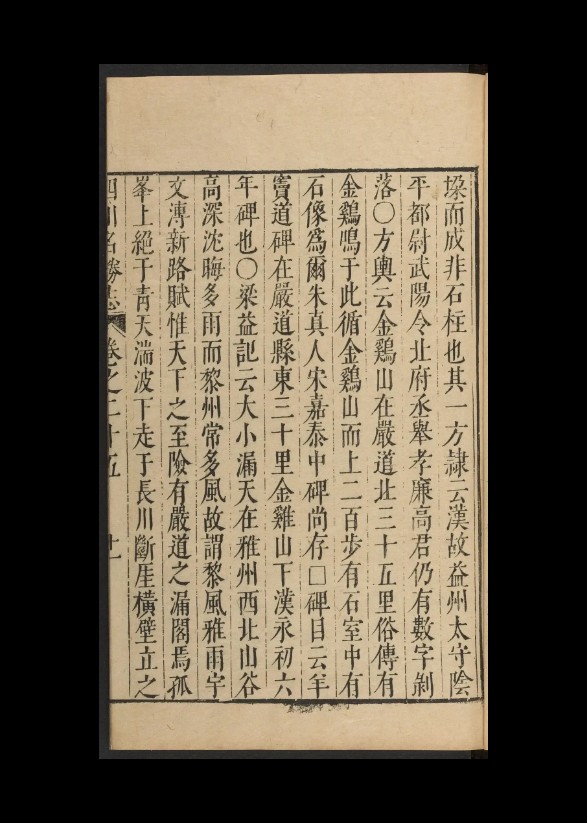 垛而成非石柱也其一方隷云漢故益州太守陰
平都尉武陽令北府丞舉孝廉高君仍有數字剝
落○方輿云金鷄山在嚴道北三十五里俗傳有
金鷄鳴于此循金鷄山而上二百步有石室中有
石像爲爾朱真人宋嘉泰中碑尚存□碑目云羊
竇道碑在嚴道縣東三十里金雞山下漢永初六
年碑也○梁益記云大小漏天在雅州西北山谷
高深沈晦多雨而黎州常多風故謂黎風雅雨宇
文溥新路賦惟天下之至險有嚴道之漏閣焉孤
峯上絕于青天湍波下走于長川斷厓橫壁立之
四川名勝志 卷之二十五 廿一